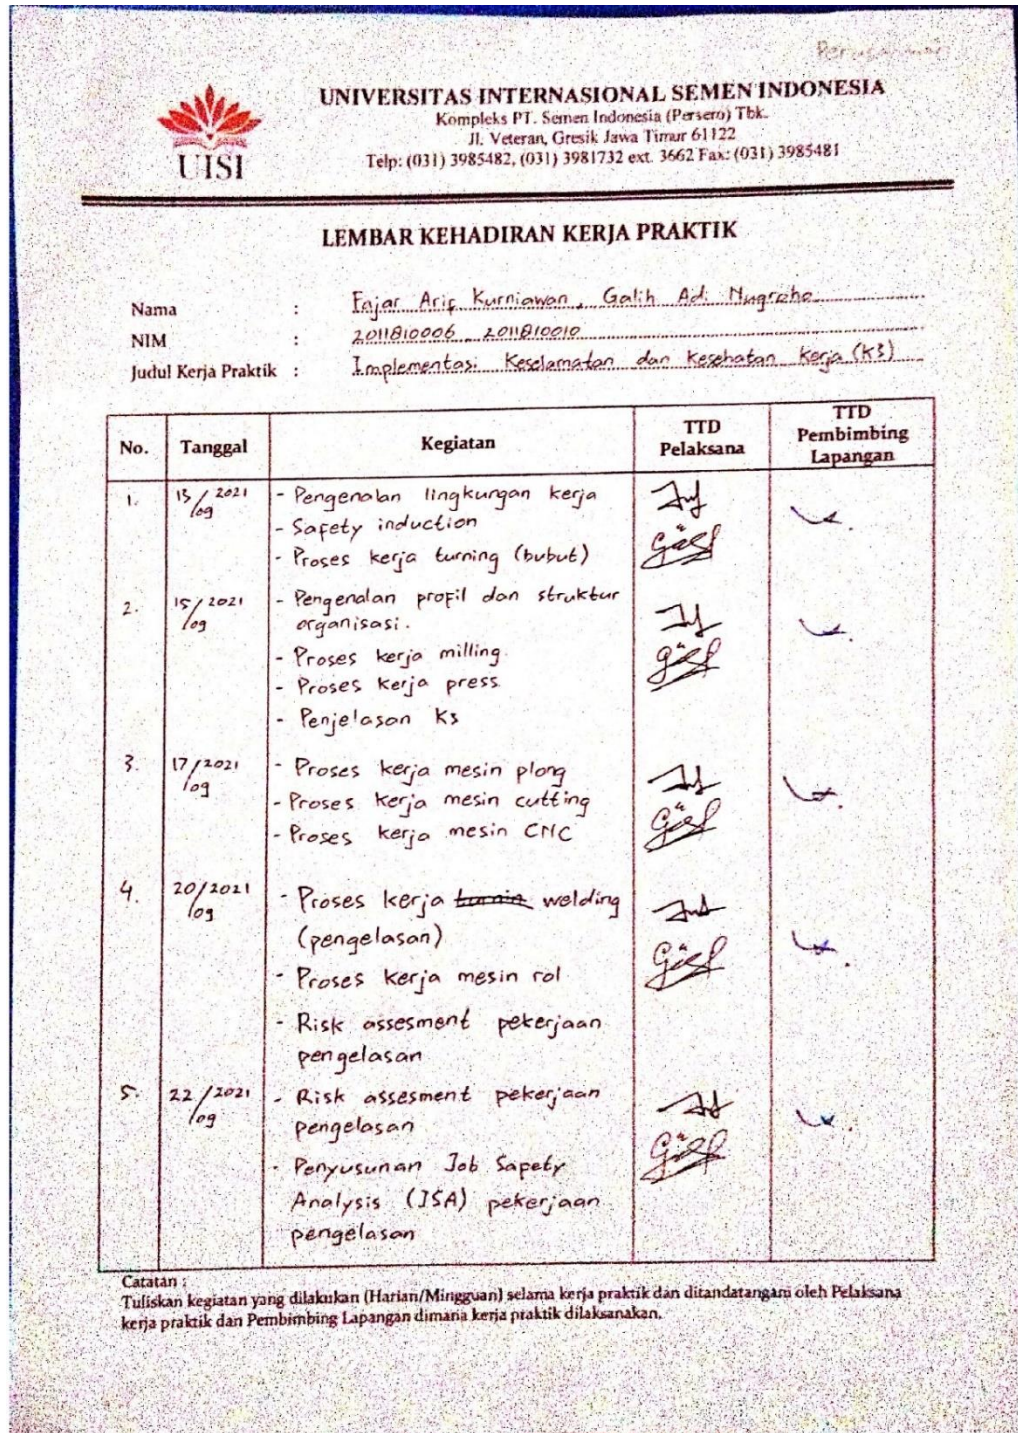 Perusahaan
UISI
UNIVERSITAS INTERNASIONAL SEMEN INDONESIA
Kompleks PT. Semen Indonesia (Persero) Tbk.
Jl. Veteran, Gresik Jawa Timur 61122
Telp: (031) 3985482, (031) 3981732 ext. 3662 Fax: (031) 3985481
LEMBAR KEHADIRAN KERJA PRAKTIK
Nama : Fajar Arif Kurniawan, Galih Adi Nugroho
NIM : 2011810006, 2011810010
Judul Kerja Praktik : Implementasi Keselamatan dan Kesehatan Kerja (K3)
No. Tanggal Kegiatan TTD Pelaksana TTD Pembimbing Lapangan
1. 13/09 2021 - Pengenalan lingkungan kerja
- Safety induction
- Proses kerja turning (bubut)
2. 15/09 2021 - Pengenalan profil dan struktur
organisasi.
- Proses kerja milling.
- Proses kerja press
- Penjelasan K3
3. 17/09 2021 - Proses kerja mesin plong
- Proses kerja mesin cutting
- Proses kerja mesin CNC
4. 20/09 2021 - Proses kerja turnin welding
(pengelasan)
- Proses kerja mesin rol
- Risk assesment pekerjaan
pengelasan
5. 22/09 2021 - Risk assesment pekerjaan
pengelasan
- Penyusunan Job Safety
Analysis (JSA) pekerjaan
pengelasan
Catatan :
Tuliskan kegiatan yang dilakukan (Harian/Mingguan) selama kerja praktik dan ditandatangani oleh Pelaksana
kerja praktik dan Pembimbing Lapangan dimana kerja praktik dilaksanakan.